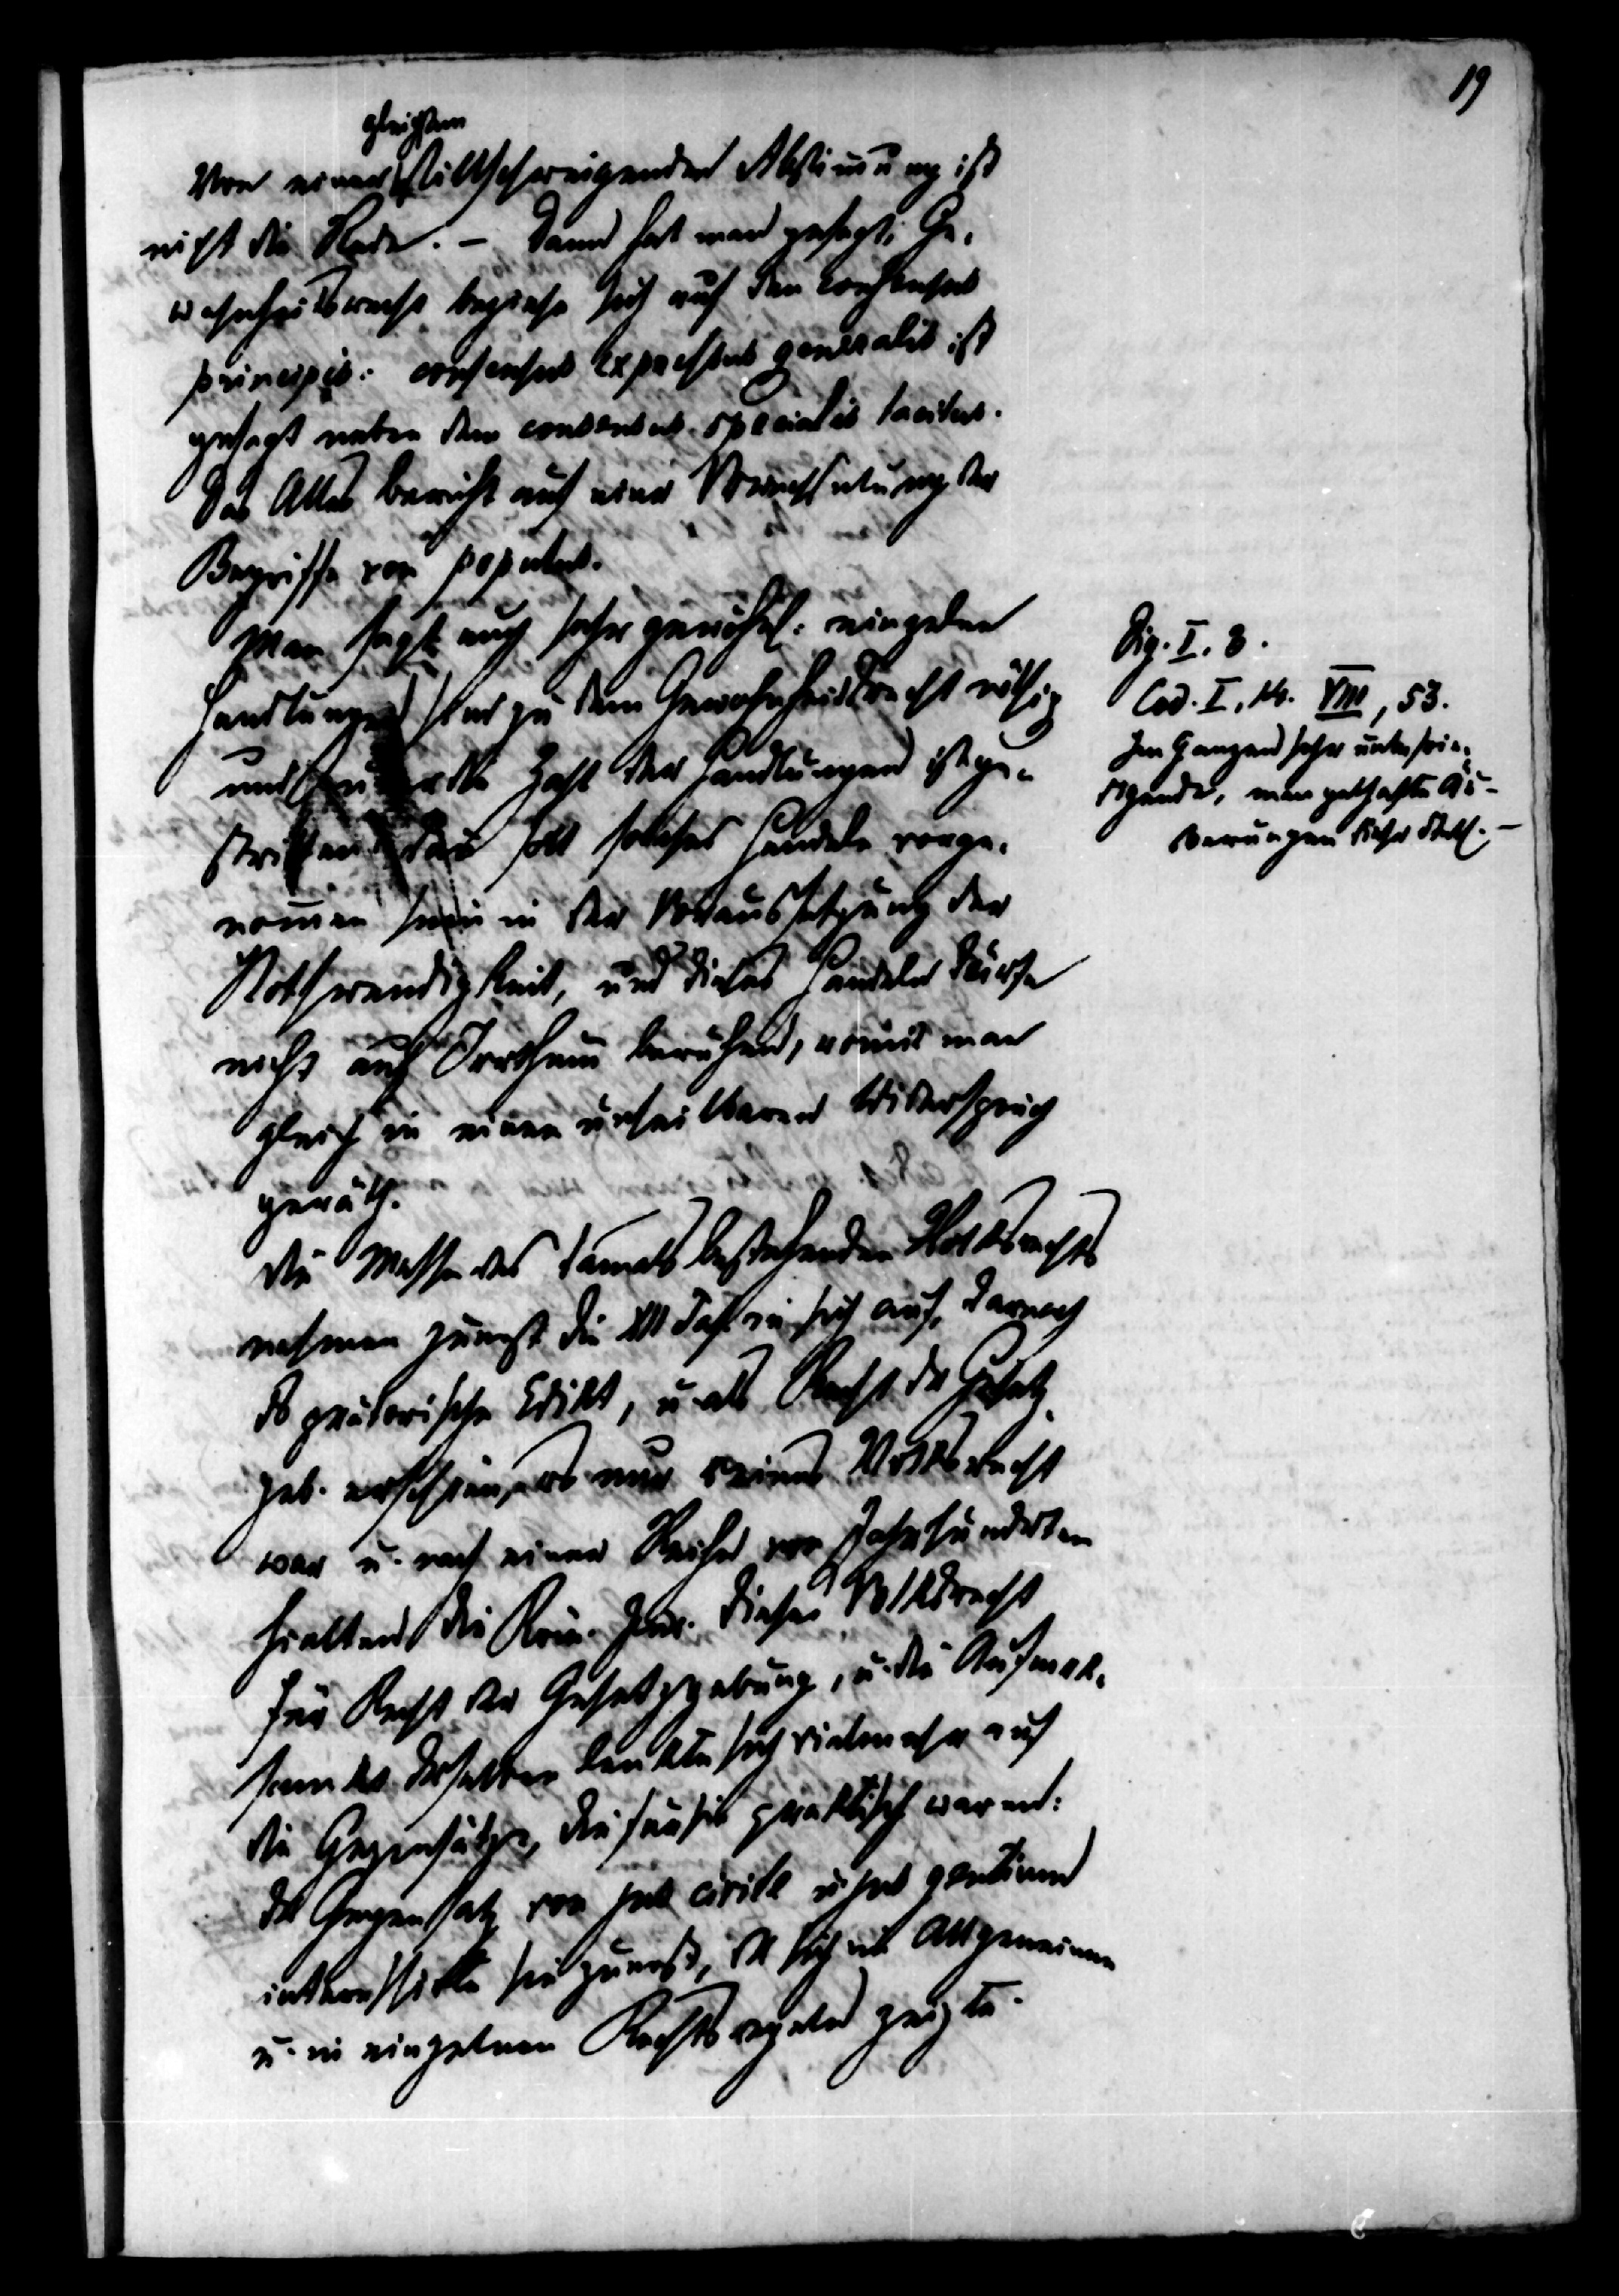 19
gleichsam
Von einer stillschweigenden Abstimmung ist
nicht die Rede. – Dann hat man gesagt, Ge-
wohnheitsrecht beziehe sich auf den consensus
principis: consensus expressus generalis ist
gesagt neben dem consensus specialis tacitus.
Das Alles beruht auf einer Verwechselung der
Begriffe von populus.
Man sagt auch sehr gewöhnl: einzelne
Handlungen sind zu dem Gewohnheitsrecht nöthig
und die Zahl der Handlungen ist ge-
stritten. Dann soll solches Handeln vorge-
nommen sein in der Voraussetzung der
Nothwendigkeit, und dieses Handeln dürfe
nicht auf Irrthum beruhen, womit man
gleich in einen unheilbaren Widerspruch
geräth.
Die Masse des damals bestehenden Volksrechts
nahmen zuerst die XII Taf. in sich auf, darnach
ds prätorische Edikt, u. als Recht der Gesetz
geb. erschien, was nur reines Volksrecht
war u. nach einer Reihe von Jahrhunderten
hielten die Röm. Jur. dieses Volksrecht
für Recht der Gesetzgebung, u. die Aufmerk-
samkt. derselben lenkte sich vielmehr auf
die Gegensätze, die für sie praktisch waren:
der Gegensatz von jus civile u. jus gentium
interessirte sie zuerst, der sich im Allgemeinen
u. in einzelnen Rechtsregeln zeigte.
Dig. I. 3.
Cod. I, 14. VIII, 53.
Im Ganzen sehr unbefrie-
digende, mangelhafte Äu-
ßerungen dieser Stell. –